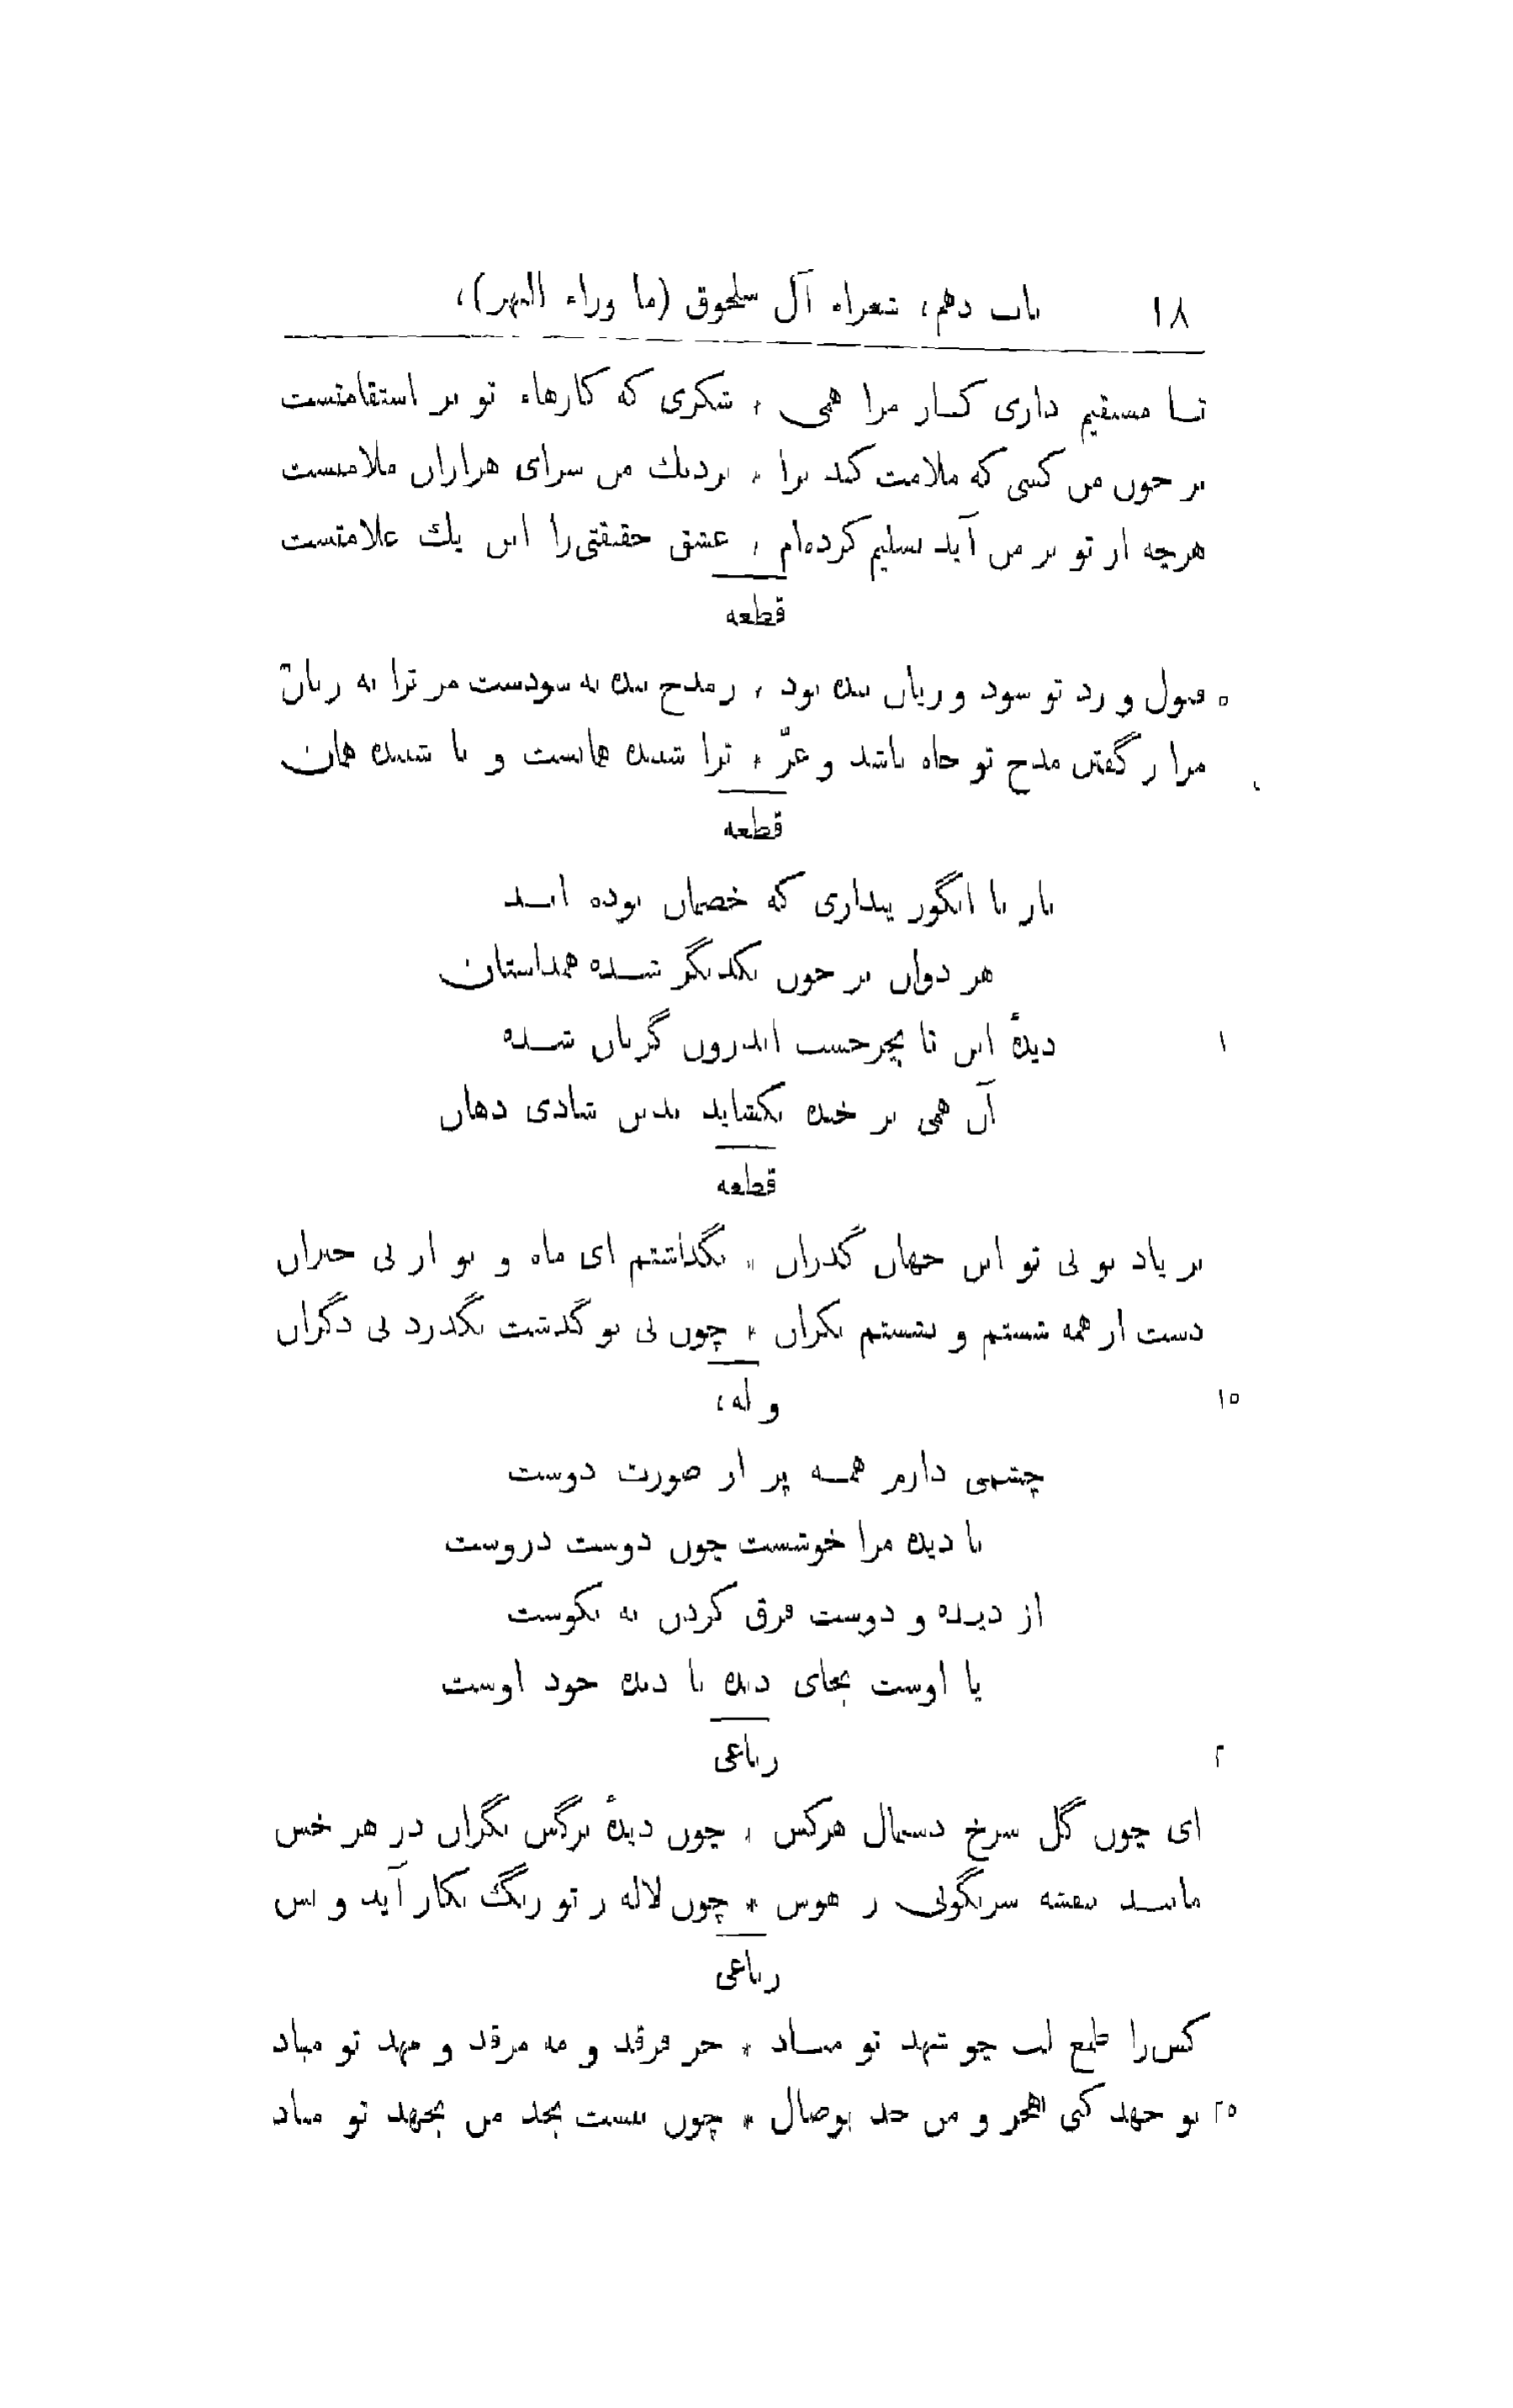 ۱۸ باب دهم، شعراء آل سلجوق (ما وراء النهر)،
تا مستقیم داری کار مرا همی * شکری که کارهاء تو بر استقامتست
بر چون من کسی که ملامت کند ترا * نزدیك من سزای هزاران ملامتست
هرچه از تو بر من آید تسلیم کرده‌ام * عشق حقیقتی‌را این یك علامتست
قطعه
۵ قبول و رد تو سود و زیان بنده بود * ز مدح بنده نه سودست مر ترا نه زیان
مرا ز گفتن مدح تو جاه باشد و عزّ * ترا شنیده همانست و نا شنیده همان
قطعه
نار با انگور پنداری که خصمان بوده اند
هر دوان بر خون یکدیگر شده همداستان
۱ دیدهٔ این تا بچرخست اندرون گریان شده
آن همی بر خنده بگشاید بدین شادی دهان
قطعه
بر یاد تو بی تو این جهان گذران * بگذاشتم ای ماه و تو از بی خبران
دست از همه شستم و نشستم نگران * چون بی تو گذشت بگذرد بی دگران
۱۵ و له،
چشمی دارم همه پر از صورت دوست
با دیده مرا خوشست چون دوست دروست
از دیده و دوست فرق کردن نه نکوست
یا اوست بجای دیده یا دیده خود اوست
۲ رباعی
ای چون گل سرخ دستمال هرکس * چون دیدهٔ نرگس نگران در هر خس
مانند بنفشه سرنگونی ز هوس * چون لاله ز تو رنگ بکار آید و بس
رباعی
کس‌را طمع لب چو شهد تو مباد * جز فرقد و مه مرقد و مهد تو مباد
۲۵ تو جهد کنی بهجر و من جد بوصال * چون نیست بجد من بجهد تو مباد